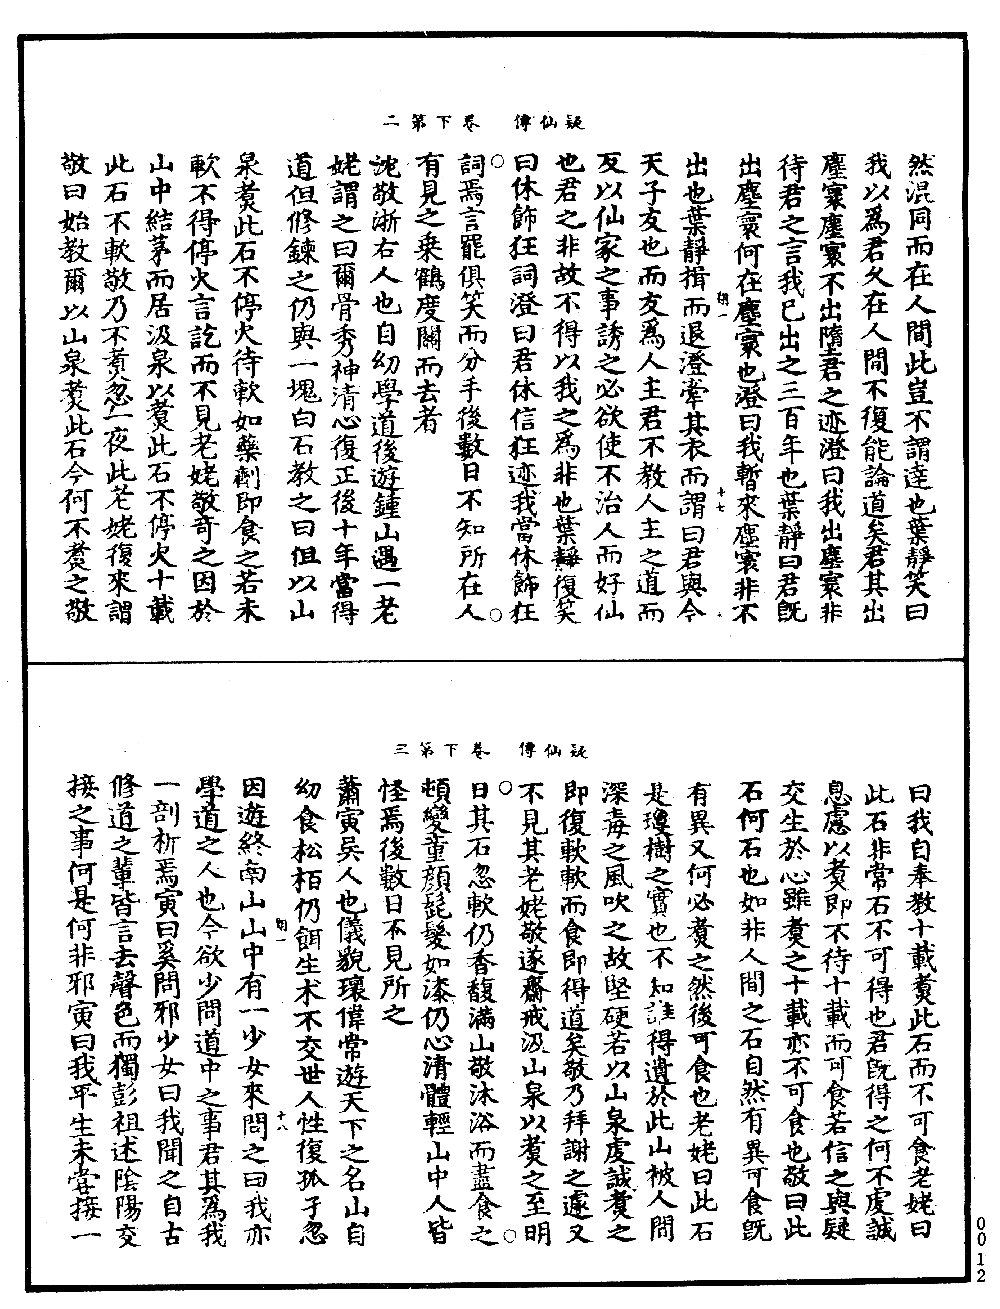 疑仙傳　卷下第二
然混同而在人間此豈不謂達也葉靜笑曰
我以爲君久在人間不復能論道矣君其出
塵寰塵寰不出隳君之迹澄曰我出塵寰非
待君之言我已出之三百年也葉靜曰君旣
出塵寰何在塵寰也澄曰我暫來塵寰非不
出也葉靜揖而退澄牽其衣而謂曰君與今
天子友也而友爲人主君不教人主之道而
反以仙家之事誘之必欲使不治人而好仙
也君之非故不得以我之爲非也葉靜復笑
曰休飾狂詞澄曰君休信狂迹我當休飾狂
詞焉言罷俱笑而分手後數日不知所在人
有見之乗鶴度關而去者
沈敬浙右人也自幼學道後遊鍾山遇一老
姥謂之曰爾骨秀神清心復正後十年當得
道但修鍊之仍與一塊白石教之曰但以山
泉煑此石不停火待軟如藥劑即食之若未
軟不得停火言訖而不見老姥敬奇之因於
山中結茅而居汲泉以煑此石不停火十載
此石不軟敬乃不煑忽一夜此老姥復來謂
敬曰始教爾以山泉煑此石今何不煑之敬
疑仙傳　卷下第三
曰我自奉教十載煑此石而不可食老姥曰
此石非常石不可得也君旣得之何不虔誠
息慮以煑即不待十載而可食若信之與疑
交生於心雖煑之十載亦不可食也敬曰此
石何石也如非人間之石自然有異可食旣
有異又何必煑之然後可食也老姥曰此石
是瓊樹之實也不知誰得遺於此山被人間
深毒之風吹之故堅硬若以山泉虔誠煑之
即復軟軟而食即得道矣敬乃拜謝之遽又
不見其老姥敬遂齋戒汲山泉以煑之至明
日其石忽軟仍香馥滿山敬沐浴而盡食之
頓變童顔髭髮如漆仍心清體輕山中人皆
怪焉後數日不見所之
蕭寅吳人也儀貌瓌偉常遊天下之名山自
幼食松栢仍餌生术不交世人性復孤孑忽
因遊終南山山中有一少女來問之曰我亦
學道之人也今欲少問道中之事君其爲我
一剖析焉寅曰奚問邪少女曰我聞之自古
修道之輩皆言去聲色而獨彭祖述陰陽交
接之事何是何非邪寅曰我平生未甞接一
十七
十八
0012